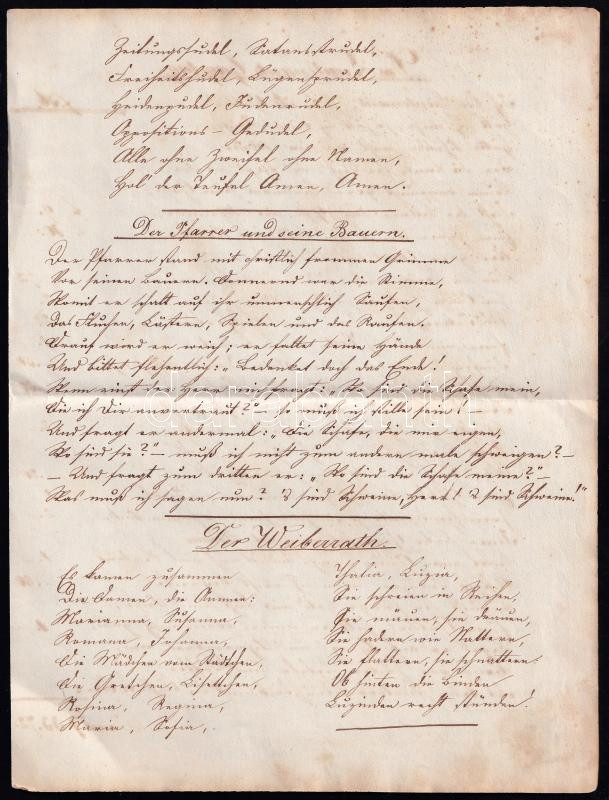 Zeitungssudel, Satansstrudel,
Freiheitshudel, Lügensprudel,
Heidenpudel, Judenrudel,
Oppositions-Gedudel,
Alle ohne Zweifel ohne Namen,
Hol' der Teufel Amen, Amen.
Der Pfarrer und seine Bauern.
Der Pfarrer stand mit christlich frommem Grimme
Vor seinen Bauern. Donnernd war die Stimme,
Womit er schalt auf ihr unmenschlich Saufen,
Das Fluchen, Lästern, Spielen und das Raufen.
Drauf wird er weich; er faltet seine Hände
Und bittet flehentlich: „Bedenket doch das Ende!
Wenn einst der Herr mich fragt: „Wo sind die Schafe mein,
Die ich Dir anvertraut?" – So muß ich stille sein! –
Und fragt er andermal: „Die Schafe, die mir eigen,
Wo sind sie?" – muß ich nicht zum andern male schweigen? –
– Und fragt zum dritten er: „Wo sind die Schafe meine?" –
Was muß ich sagen nun? 'S sind Schweine, Herr! 'S sind Schweine!"
Der Weiberrath.
Es kamen zusammen
Die Damen, die Ammen:
Marianna, Susanna,
Romana, Johanna,
Die Mädchen vom Städtchen,
Die Gretchen, Lisettchen,
Rosina, Regina,
Maria, Sofia,
Thalia, Luzia,
Sie schreien in Reihen,
Sie mäuen, sie dräuen,
Sie hadern wie Nattern,
Sie flattern, sie schnattern:
Ob hinten die Binden
Luzinden recht stünden!
darabanth